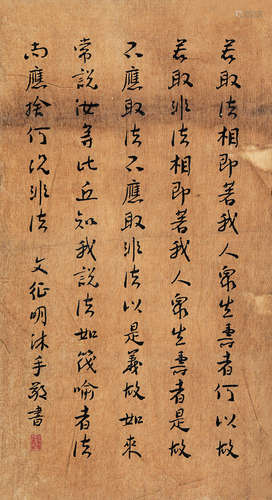 若取法相即著我人衆生壽者何以故
若取非法相即著我人衆生壽者是故
不應取法不應取非法以是義故如來
常說汝等比丘知我說法如筏喻者法
尚應捨何况非法 文征明沐手敬書